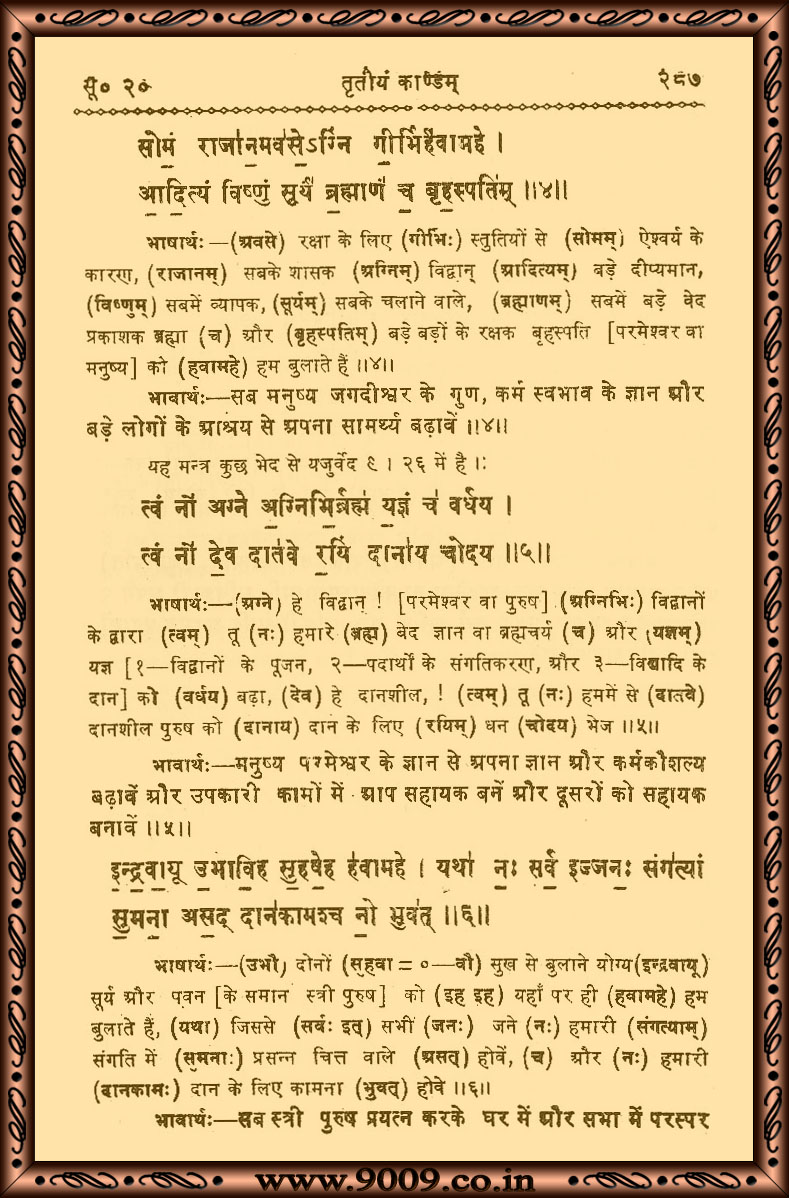 सू० २० तृतीयं काण्डम् २८७
सोमं॒ राजा॑न॒मव॑से॒ऽग्निं गी॒र्भिर्ह॑वामहे ।
आ॒दि॒त्यं विष्णुं॒ सूर्यं॑ ब्र॒ह्माणं॑ च॒ बृह॒स्पति॑म् ॥४॥
भाषार्थः—(अवसे) रक्षा के लिए (गीर्भिः) स्तुतियों से (सोमम्) ऐश्वर्य के
कारण, (राजानम्) सबके शासक (अग्निम्) विद्वान् (आदित्यम्) बड़े दीप्यमान,
(विष्णुम्) सबमें व्यापक, (सूर्यम्) सबके चलाने वाले, (ब्रह्माणम्) सबमें बड़े वेद
प्रकाशक ब्रह्मा (च) और (बृहस्पतिम्) बड़े बड़ों के रक्षक बृहस्पति [परमेश्वर वा
मनुष्य] को (हवामहे) हम बुलाते हैं ॥४॥
भावार्थः—सब मनुष्य जगदीश्वर के गुण, कर्म स्वभाव के ज्ञान और
बड़े लोगों के आश्रय से अपना सामर्थ्य बढ़ावें ॥४॥
यह मन्त्र कुछ भेद से यजुर्वेद ९ । २६ में है ।:
त्वं नो॑ अग्ने अ॒ग्निभि॒र्ब्रह्म॑ य॒ज्ञं च॑ वर्धय ।
त्वं नो॑ दे॒व दात॑वे र॒यिं दाना॑य चोदय ॥५॥
भाषार्थः—(अग्ने) हे विद्वान् ! [परमेश्वर वा पुरुष] (अग्निभिः) विद्वानों
के द्वारा (त्वम्) तू (नः) हमारे (ब्रह्म) वेद ज्ञान वा ब्रह्मचर्य (च) और (यज्ञम्)
यज्ञ [१—विद्वानों के पूजन, २—पदार्थों के संगतिकरण, और ३—विद्यादि के
दान] को (वर्धय) बढ़ा, (देव) हे दानशील, ! (त्वम्) तू (नः) हममें से (दातवे)
दानशील पुरुष को (दानाय) दान के लिए (रयिम्) धन (चोदय) भेज ॥५॥
भावार्थः—मनुष्य परमेश्वर के ज्ञान से अपना ज्ञान और कर्मकौशल्य
बढ़ावें और उपकारी कामों में आप सहायक बनें और दूसरों को सहायक
बनावें ॥५॥
इ॒न्द्र॒वा॒यू उ॒भावि॒ह सु॒हवे॒ह ह॑वामहे । यथा॑ नः॒ सर्व॒ इज्जनः॒ संग॑त्यां
सु॒मना॒ अस॒द् दान॑कामश्च नो॒ भुव॑त् ॥६॥
भाषार्थः—(उभौ) दोनों (सुहवा = ०—वौ) सुख से बुलाने योग्य(इन्द्रवायू)
सूर्य और पवन [के समान स्त्री पुरुष] को (इह इह) यहाँ पर ही (हवामहे) हम
बुलाते हैं, (यथा) जिससे (सर्वः इत्) सभी (जनः) जने (नः) हमारी (संगत्याम्)
संगति में (सुमनाः) प्रसन्न चित्त वाले (असत्) होवें, (च) और (नः) हमारी
(दानकामः) दान के लिए कामना (भुवत्) होवे ॥६॥
भावार्थः—सब स्त्री पुरुष प्रयत्न करके घर में और सभा में परस्पर
www.9009.co.in